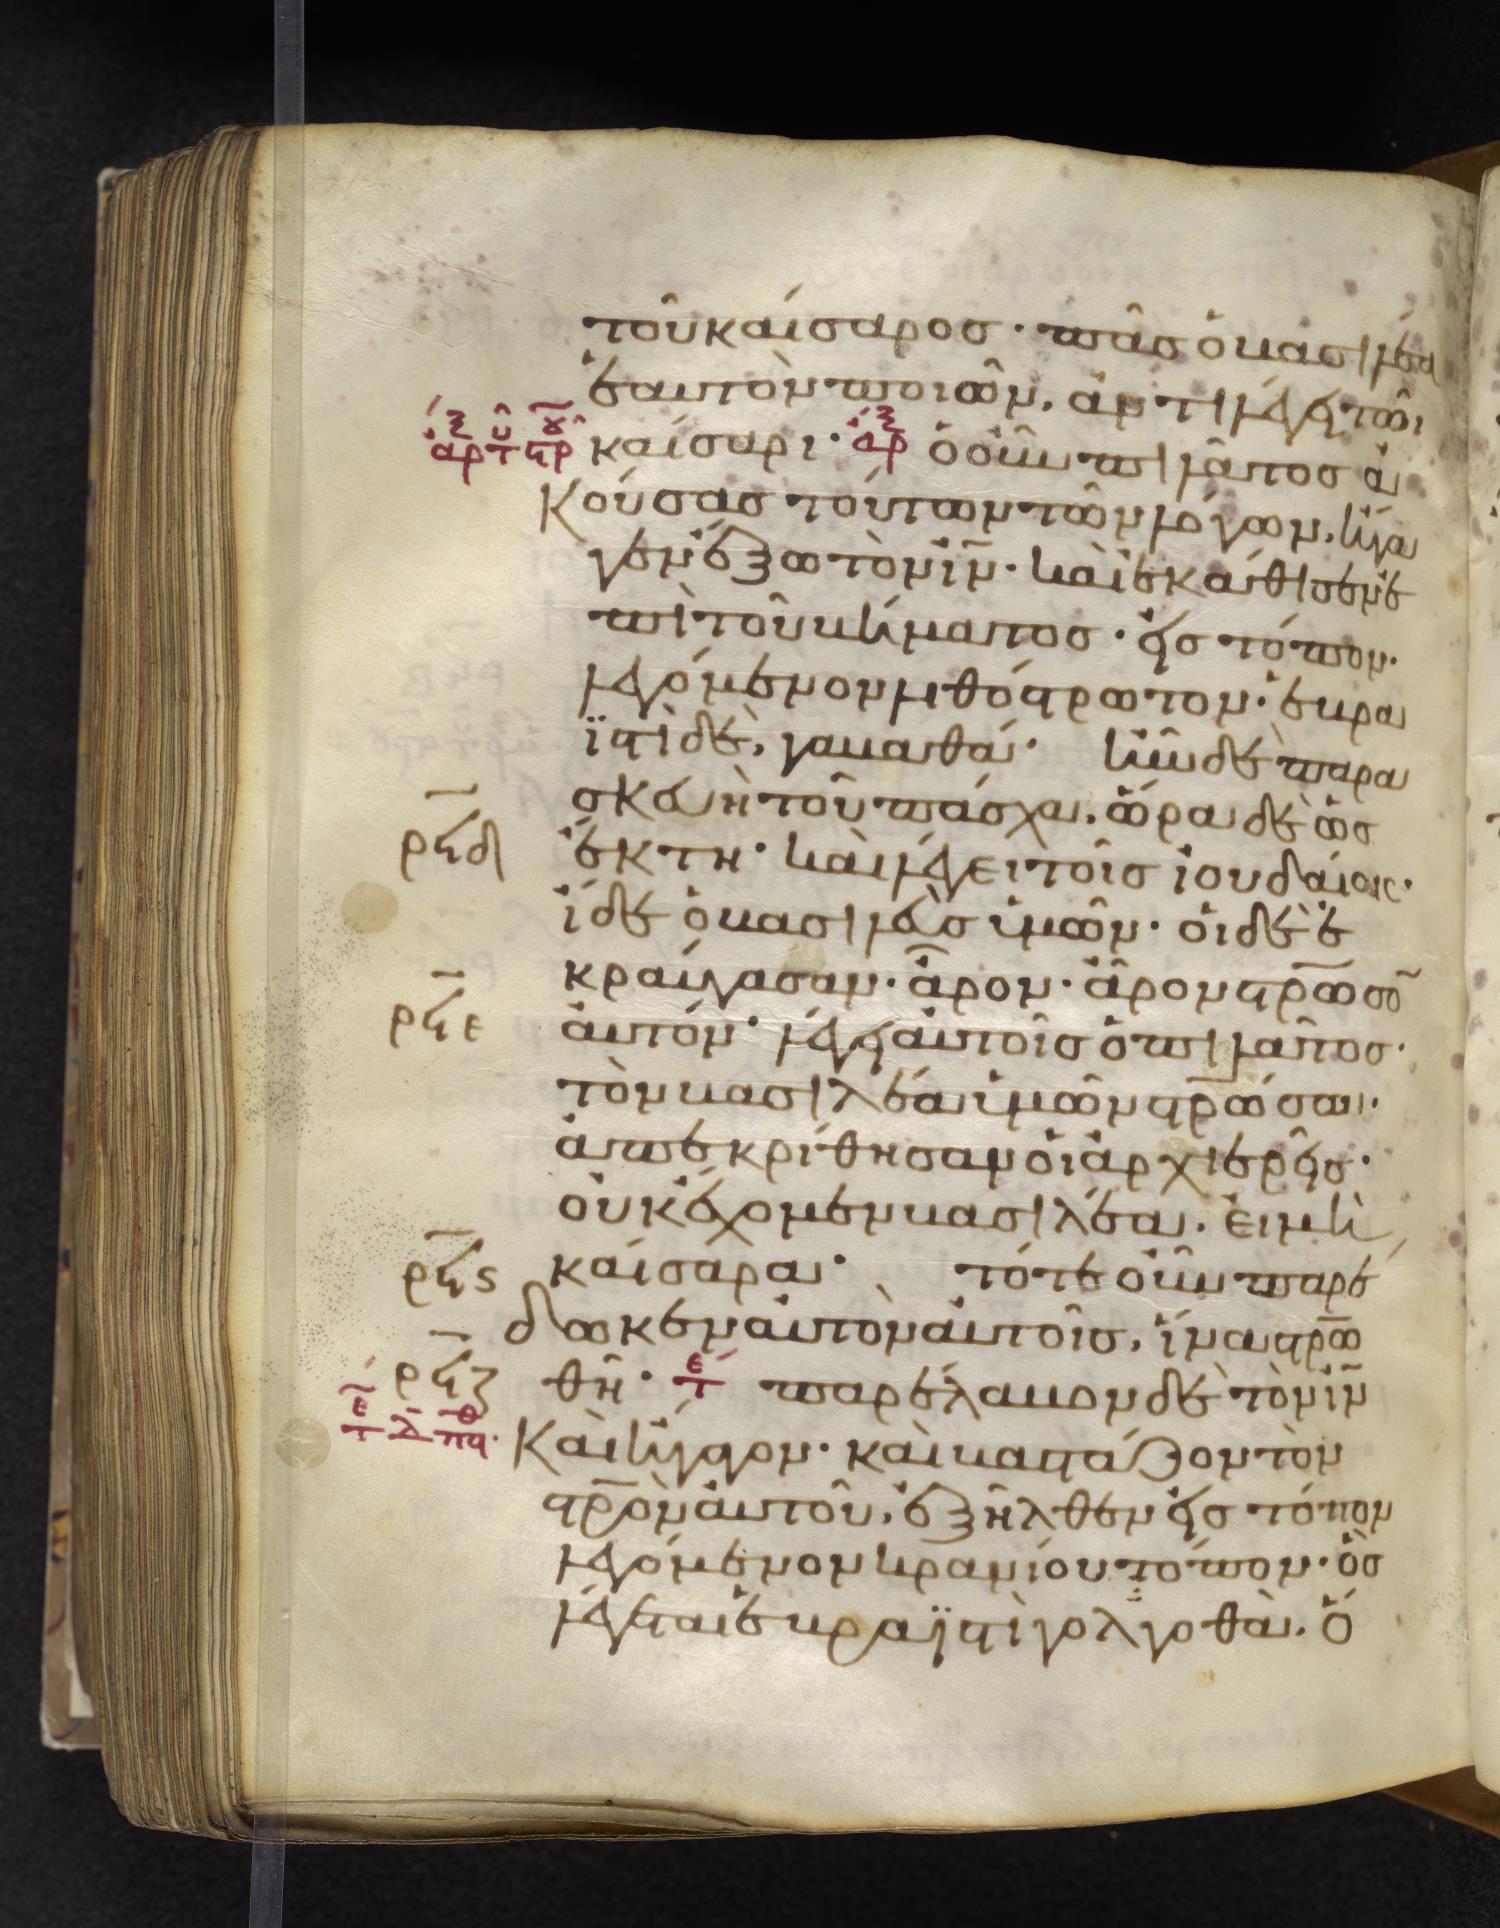 τοῦ καίσαρος · πᾶς ὁ βασιλέα
ἑαυτὸν ποιῶν, ἀντιλέγει τῶι
καίσαρι · ἀρξ ὁ οὖν πιλᾶτος ἀ
κούσας τούτων τῶν λόγων, ἤγα
γεν ἔξω τὸν ἰν̄ · καὶ ἐκάθισεν ἐ
πὶ τοῦ βήματος · εἰς τόπον
λεγόμενον λιθόστρωτον · ἑβρα
ϊστὶ δὲ, γαβαθά · ἦν δὲ παρα
σκευὴ τοῦ πάσχα, ὥρα δὲ ὡς
ρϟδ ἕκτη · καὶ λέγει τοῖς ἰουδαίοις ·
ἴδε ὁ βασιλεὺς ὑμῶν · οἱ δὲ ἐ
κραύγασαν · ἆρον · ἆρον στρ̄ωσον
ρϟε αὐτόν · λέγει αὐτοῖς ὁ πιλᾶτος ·
τὸν βασιλέα ὑμῶν στρ̄ώσω ·
ἀπεκρίθησαν οἱ ἀρχιερεῖς ·
οὐκ ἔχομεν βασιλέα, εἰ μὴ
ρϟϛ καίσαρα · τότε οὖν παρέ
δωκεν αὐτὸν αὐτοῖς, ἵνα στρ̄ω
ρϟζ θῆ · τε παρέλαβον δὲ τὸν ἰν̄
καὶ ἤγαγον · καὶ βαστάζον τὸν
στρ̄ὸν αὐτοῦ, ἐξῆλθεν εἰς τόπον
λεγόμενον κρανίου τόπον · ὃς
λέγεται ἑβραϊστὶ γολγοθὰ · ὅ